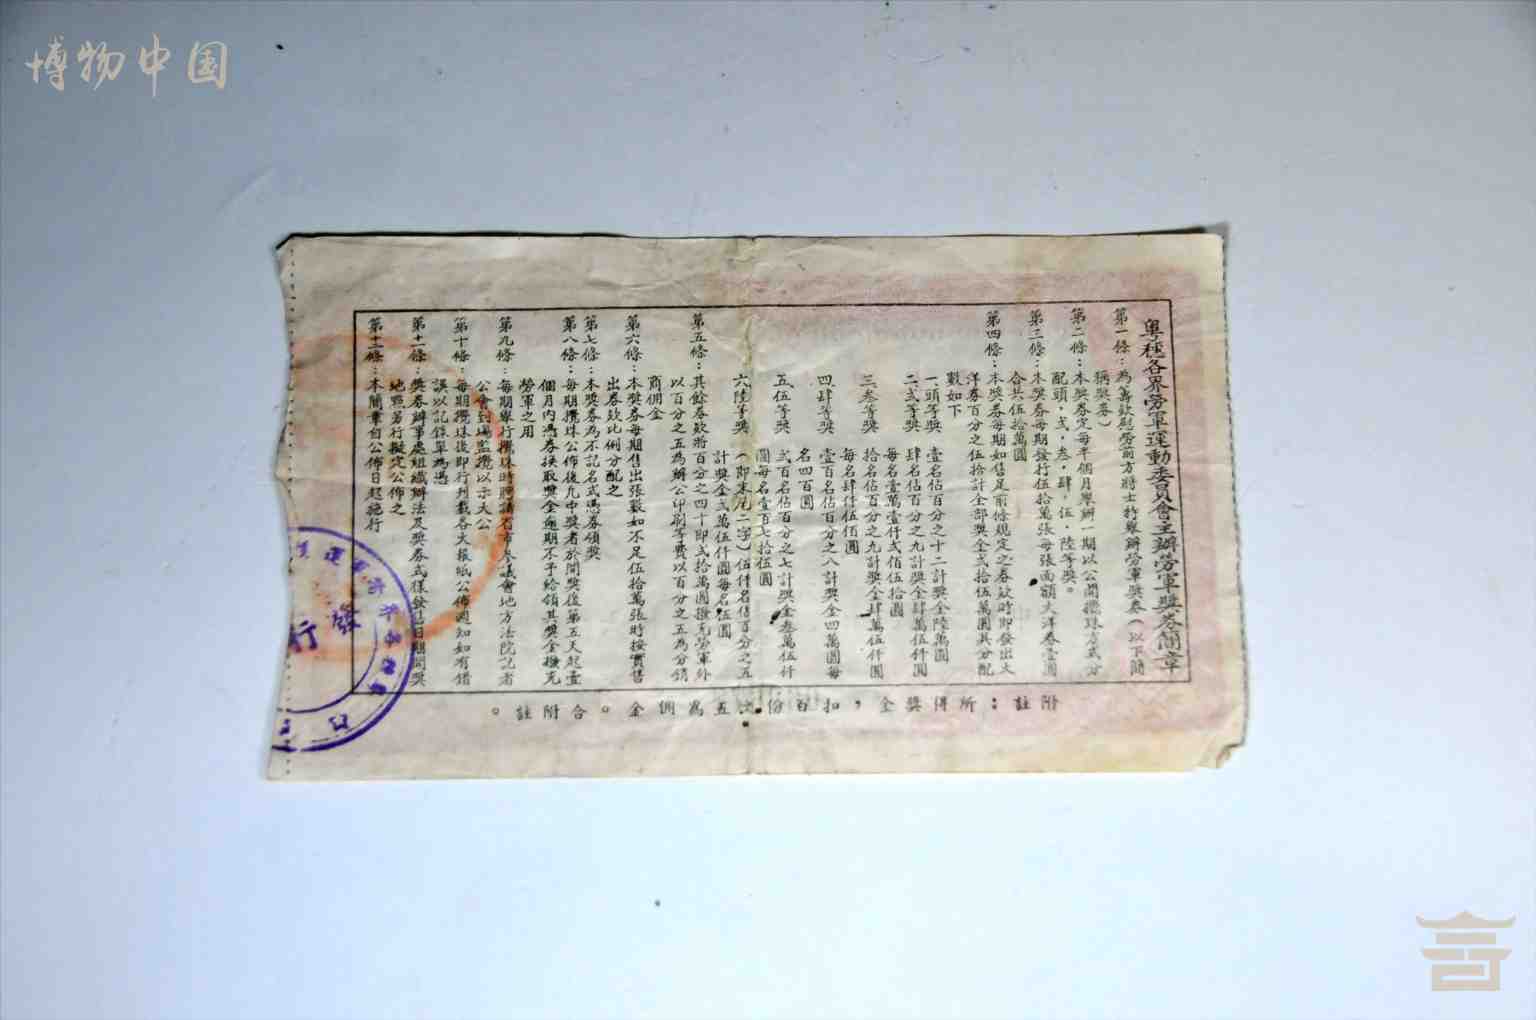 博物中国
粵穗各界勞軍運動委員會主辦勞軍獎券簡章
第一條：為籌欵慰勞前方將士特舉辦勞軍獎券（以下簡
稱獎券）
第二條：本獎券定每半個月舉辦一期以公開攪珠方式分
配頭，弍，叁，肆，伍，陸等獎。
第三條：本獎券每期發行伍拾萬張每張面額大洋券壹圓
合共伍拾萬圓
第四條：本獎券每期如售足前條規定之券欵時即發出大
洋券百分之伍拾計全部獎金弍拾伍萬圓其分配
數如下
一頭等獎 壹名佔百分之十二計獎金陸萬圓
二弍等獎 肆名佔百分之九計獎金肆萬伍仟圓
每名壹萬壹仟弍佰伍拾圓
三叁等獎 拾名佔百分之九計獎金肆萬伍仟圓
每名肆仟伍佰圓
四肆等獎 壹百名佔百分之八計獎金四萬圓每
名四百圓
五伍等獎 弍百名佔百分之七計獎金叁萬伍仟
圓每名壹百七拾伍圓
六陸等獎 （即末尾二字）伍仟名佔百分之五
計獎金弍萬伍仟圓每名伍圓
第五條：其餘券欵將百分之四十即弍拾萬圓撥充勞軍外
以百分之五為辦公印刷等費以百分之五為分銷
商佣金
第六條：本獎券每期售出張數如不足伍拾萬張時按實售
出券欵比例分配之
第七條：本獎券為不記名式憑券領獎
第八條：每期攪珠公佈後凡中獎者於開獎後第五天起壹
個月內憑券換取獎金逾期不予給領其獎金撥充
勞軍之用
第九條：每期舉行攪珠時聘請省市參議會地方法院記者
公會到場監攪以示大公
第十條：每期攪珠後即行刊載各大報紙公佈週知如有錯
誤以記錄單為憑
第十一條：獎券辦事處組織辦法及獎券式樣發售日期開獎
地點另行擬定公佈之
第十二條：本簡章自公佈日起施行
附註：所得獎金，扣百份之五為佣金。合附註。
發行